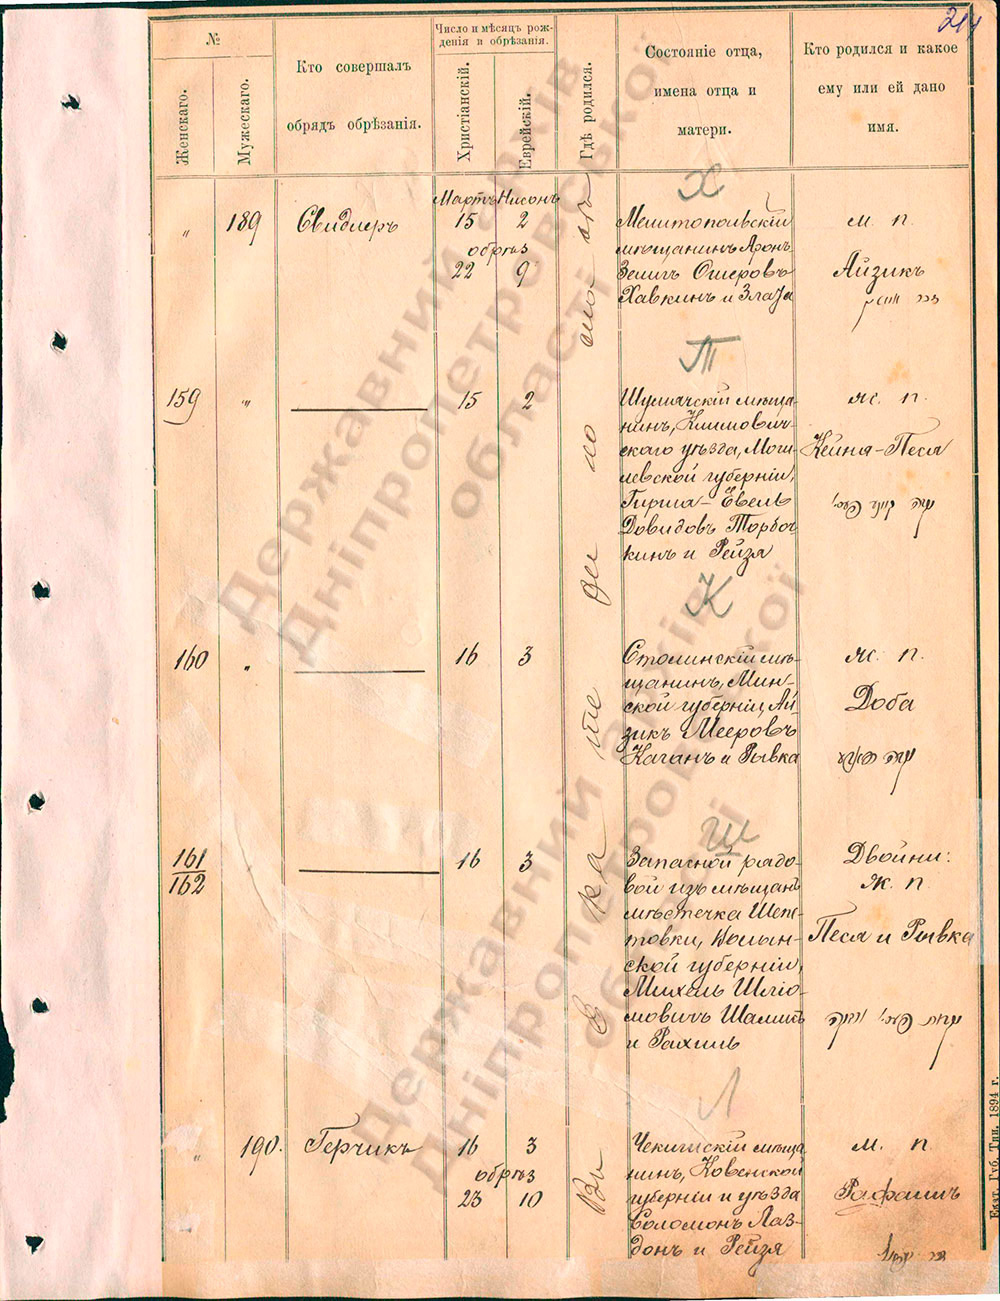 214
№
Женскаго.
Мужескаго.
Кто совершалъ
обрядъ обрѣзанія.
Число и мѣсяцъ рож-
денія и обрѣзанія.
Христіанскій.
Еврейскій.
Гдѣ родился.
Состояніе отца,
имена отца и
матери.
Кто родился и какое
ему или ей дано
имя.
Х
" 189 Свидлеръ
Мартъ Нисонъ
15 2
обрѣз
22 9
Мелитопольскій
мѣщанинъ Аронъ-
Зелигъ Ошеровъ
Хавкинъ и Злата
м. п.
Айзикъ
Т
159 " 15 2
мѣща-
нинъ, Климович-
скаго уѣзда, Моги-
левской губерніи,
Гирша-Евель
Довидовъ
кинъ и Рейзя
ж. п.
Кейня-Песя
К
160 " 16 3
Столинскій мѣ-
щанинъ, Мин-
ской губерніи, Ай-
зикъ Мееровъ
Каганъ и Рывка
ж. п.
Доба
Ш
161
162
16 3
Запасной рядо-
вой изъ мѣщанъ
мѣстечка Шепе-
товки, Волын-
ской губерніи,
Михель Шліо-
мовичъ
и Рахиль
Двойни:
ж. п.
Песя и Рывка
Л
" 190. Герчикъ
16 3
обрѣз
23 10
Чекишскій мѣща-
нинъ, Ковенской
губерніи и уѣзда
Соломонъ Лаз-
донъ и Рейзя
м. п.
Рафаилъ
Въ Екатеринославѣ
Екат. Губ. Тип. 1894 г.
Державний архів
Дніпропетровської
області
Державний архів
Дніпропетровської
області